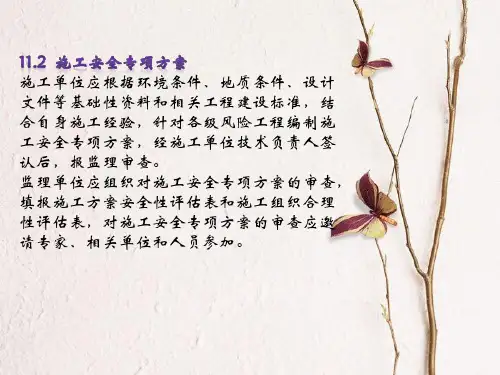 11.2 施工安全专项方案
施工单位应根据环境条件、地质条件、设计
文件等基础性资料和相关工程建设标准，结
合自身施工经验，针对各级风险工程编制施
工安全专项方案，经施工单位技术负责人签
认后，报监理审查。
监理单位应组织对施工安全专项方案的审查，
填报施工方案安全性评估表和施工组织合理
性评估表，对施工安全专项方案的审查应邀
请专家、相关单位和人员参加。